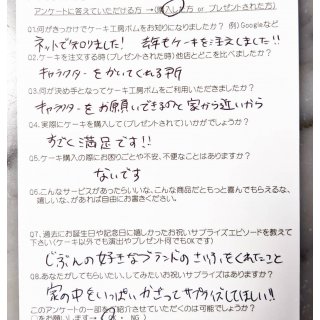 アンケートに答えていただける方 →(購入した方 or プレゼントされた方)
Q1.何がきっかけでケーキ工房ボムをお知りになりましたか？ 例)Googleなど
ネットで知りました！ 去年もケーキを注文しました!!
Q2.ケーキを注文する時(プレゼントされた時)他店とどこを比べましたか？
キャラクターをかいてくれる所
Q3.何が決め手となってケーキ工房ボムをご利用いただきましたか？
キャラクターをお願いできるのと家から近いから
Q4.実際にケーキを購入して(プレゼントされて)いかがでしょうか？
すごく満足です!!
Q5.ケーキ購入の際にお困りごとや不安、不便なことはありますか？
ないです
Q6.こんなサービスがあったらいいな、こんな商品だともっと喜んでもらえるな、
嬉しいな、があれば自由にお書きください。
Q7.過去にお誕生日や記念日に嬉しかったお祝いサプライズエピソードを教えて
下さい(ケーキ以外でも演出やプレゼント何でもOKです)
じぶんの好きなブランドのさいふをくれたこと
Q8.あなたがしてもらいたい、してみたいお祝いサプライズはありますか？
家の中をいっぱいかざってサプライズしてほしい!!
このアンケートの一部をご紹介させていただくのは可能でしょうか
○をお願いします→ (OK ・ NG )